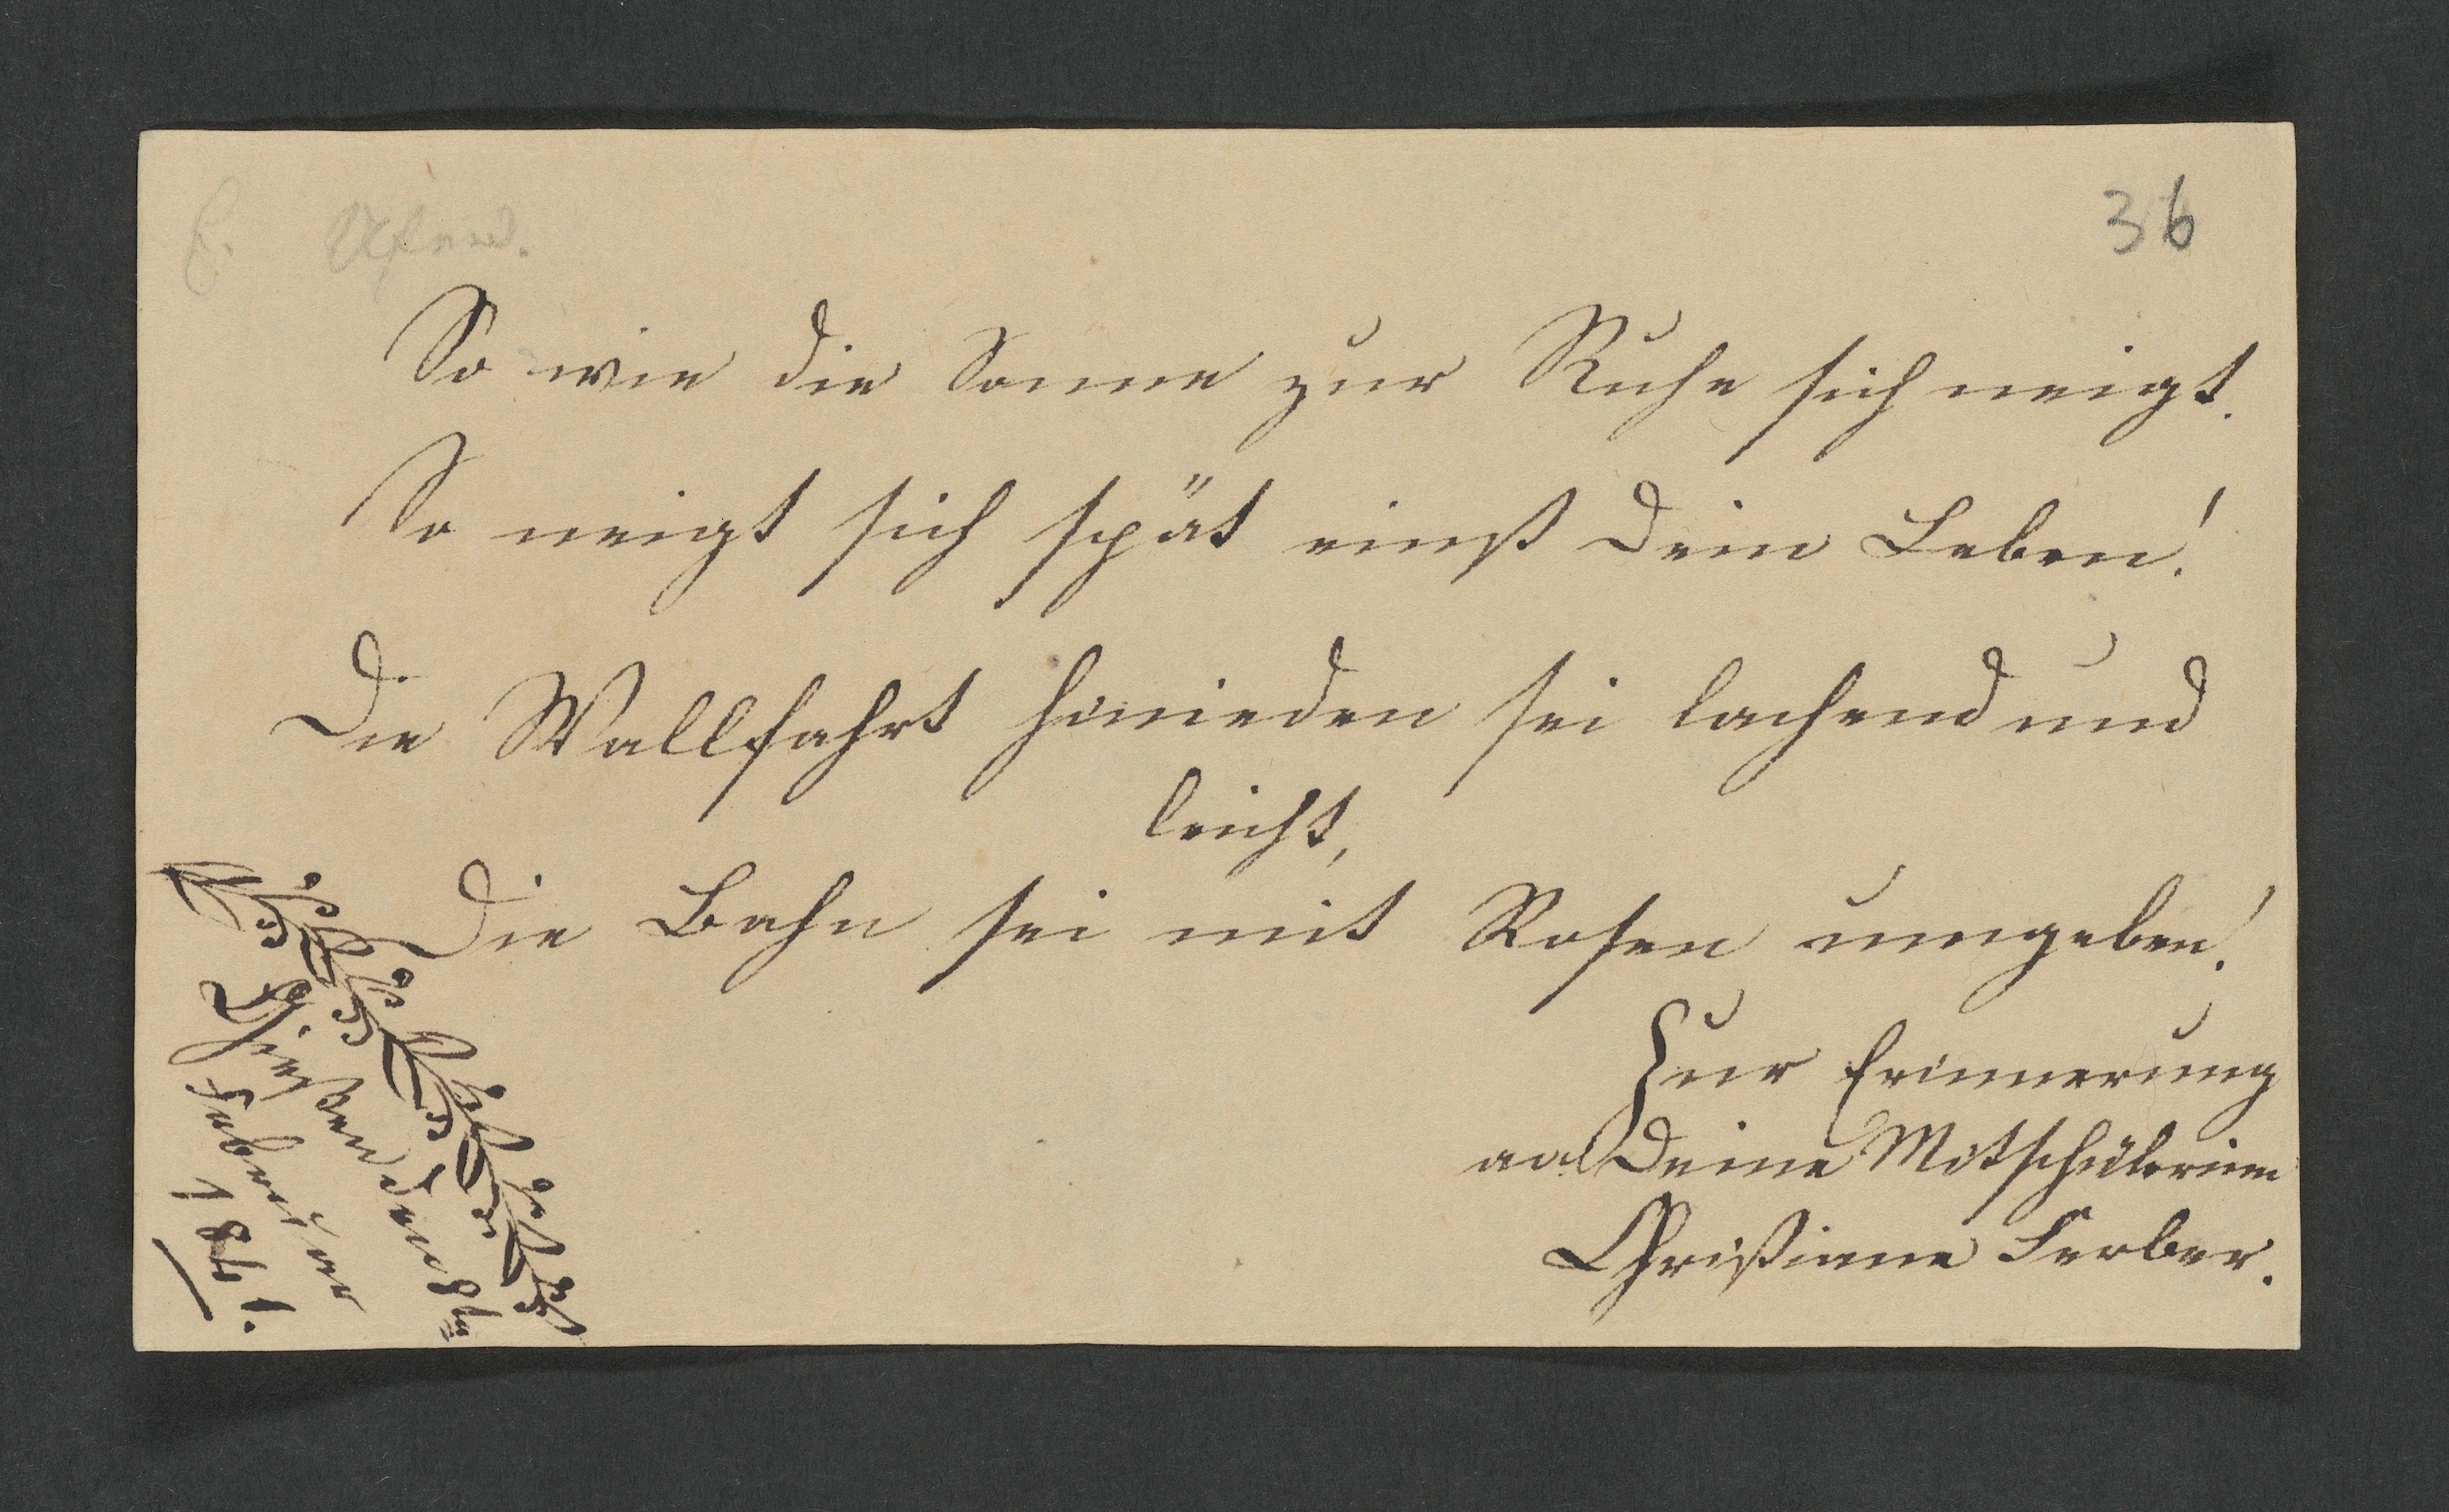 36
So wie die Sonne zur Ruhe sich neigt.
So neigt sich spät einst Dein Leben!
Die Wallfahrt hinieden sei lachend und
leicht,
Die Bahn sei mit Rosen umgeben!
Zur Erinnerung
an Deine Mitschülerinn
Christiane Ferber.
Gießen den 8ten
Februar
1841.